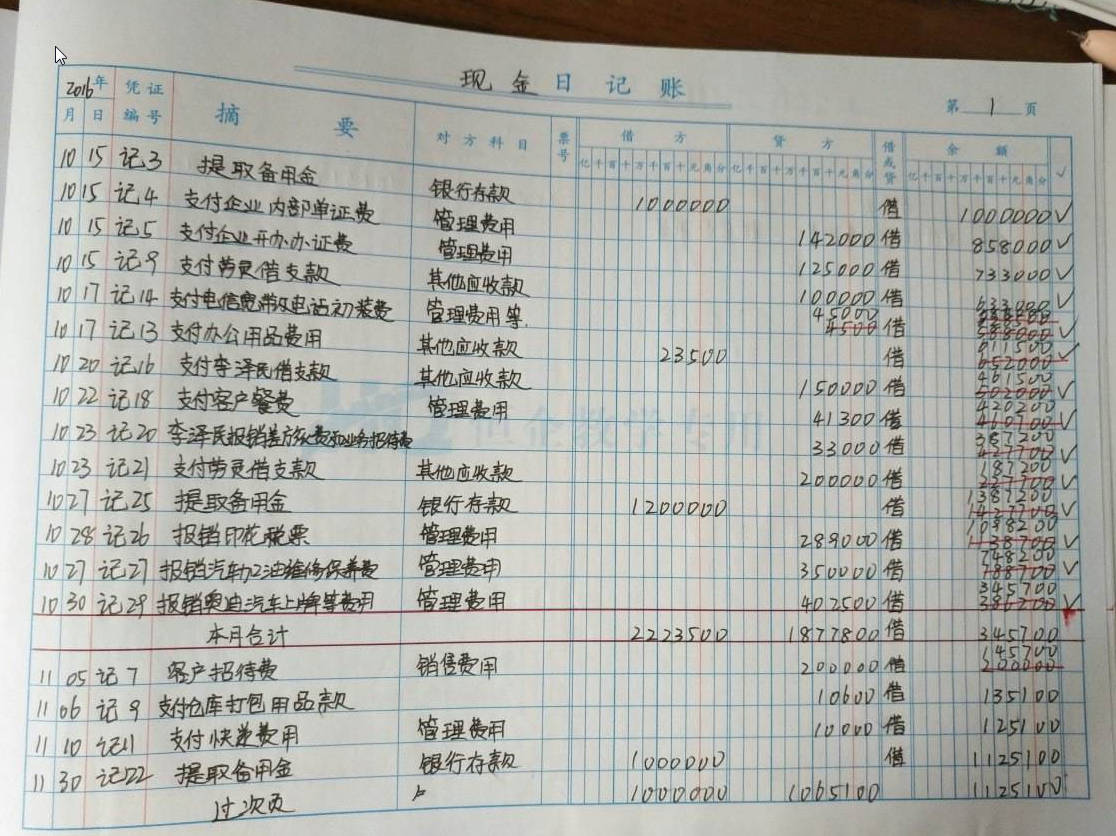 现金日记账
第 1 页
2016年 凭证 摘要 对方科目 票号 借方 贷方 借或贷 余额 √
月 日 编号 亿千百十万千百十元角分 亿千百十万千百十元角分 亿千百十万千百十元角分
10 15 记3 提取备用金 银行存款 1000000 借 1000000 √
10 15 记4 支付企业内部单证费 管理费用 142000 借 858000 √
10 15 记5 支付企业开办办证费 管理费用 125000 借 733000 √
10 15 记9 支付劳灵借支款 其他应收款 100000 借 633000 √
10 17 记14 支付电信宽带及电话初装费 管理费用等 45000 4500 借 588000 √
10 17 记13 支付办公用品费用 其他应收款 23500 借 611500 652000 √
10 20 记16 支付李泽民借支款 其他应收款 150000 借 461500 502000 √
10 22 记18 支付客户餐费 管理费用 41300 借 420200 460700 √
10 23 记20 李泽民报销差旅费和业务招待费 33000 借 387200 427700 √
10 23 记21 支付劳灵借支款 其他应收款 200000 借 187200 227700 √
10 27 记25 提取备用金 银行存款 1200000 借 1387200 1427700 √
10 28 记26 报销印花税票 管理费用 289000 借 1098200 1138700 √
10 27 记27 报销汽车加油维修保养费 管理费用 350000 借 748200 788700 √
10 30 记29 报销奥迪汽车上牌等费用 管理费用 402500 借 345700 386200 √
本月合计 2223500 1877800 借 345700
11 05 记7 客户招待费 销售费用 200000 借 145700 200000
11 06 记9 支付仓库打包用品款 10600 借 135100
11 10 记11 支付快递费用 管理费用 10000 借 125100
11 30 记22 提取备用金 银行存款 1000000 借 1125100
过次页 1000000 1065100 1125100 √
恒企教学专用